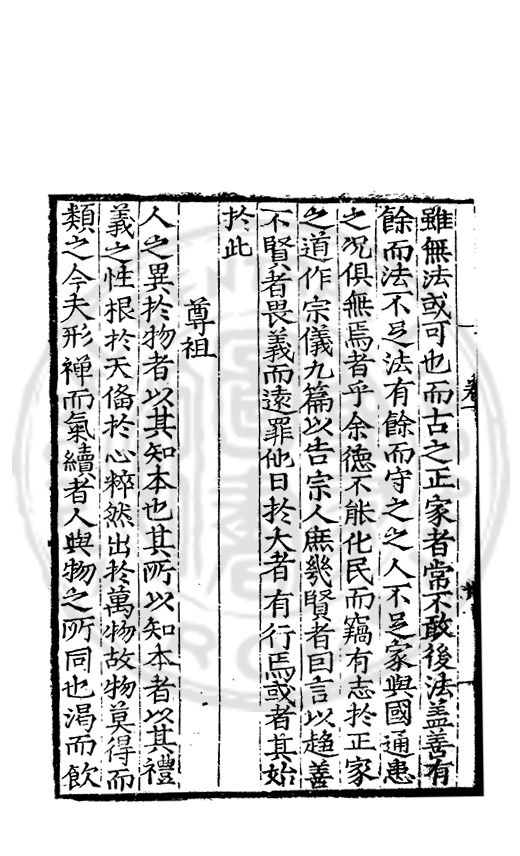 雖無法或可也而古之正家者常不敢後法盖善有
餘而法不足法有餘而守之之人不足家與國通患
之况俱無焉者乎余德不能化民而竊有志扵正家
之道作宗儀九篇以告宗人庶幾賢者因言以趨善
不賢者畏義而遠罪他日扵大者有行焉或者其始
扵此
尊祖
人之異扵物者以其知本也其所以知本者以其禮
義之性根扵天俻扵心粹然出扵萬物故物莫得而
類之今夫形禅而氣續者人與物之所同也渴而飲